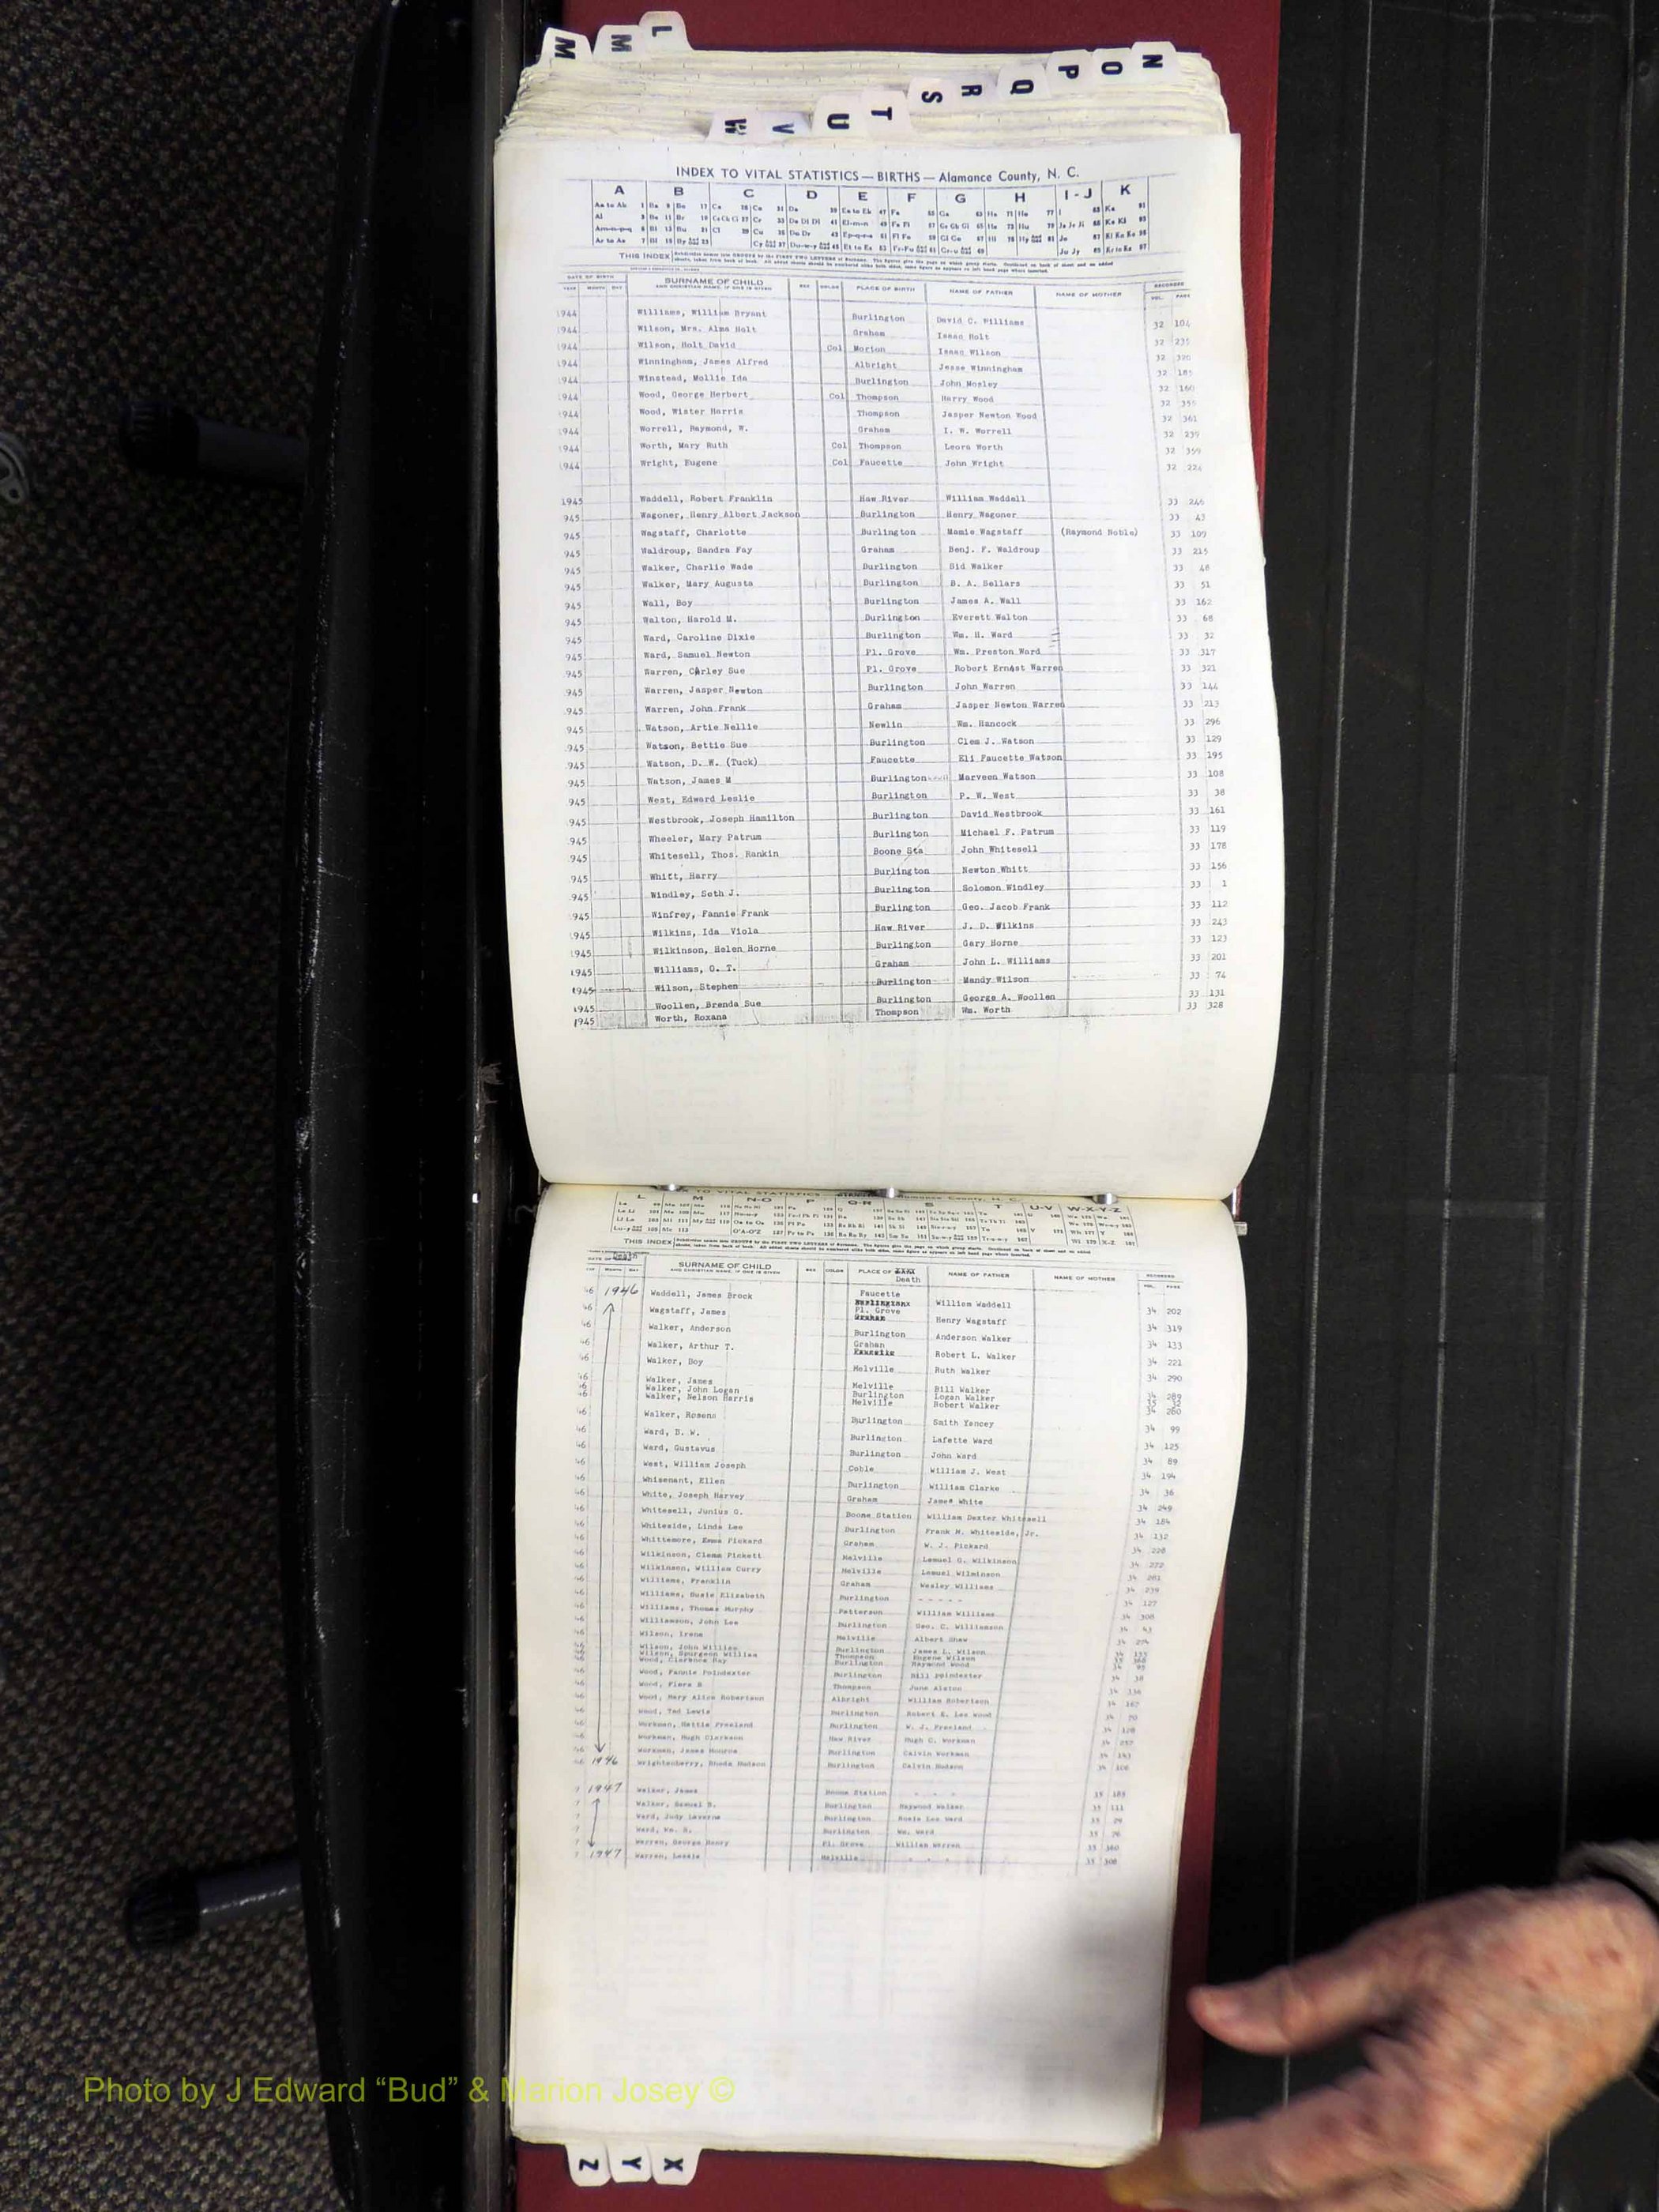 M M L
N O P Q R S T U V W
INDEX TO VITAL STATISTICS — BIRTHS — Alamance County, N. C.
A B C D E F G H I-J K
THIS INDEX
DATE OF BIRTH SURNAME OF CHILD SEX COLOR PLACE OF BIRTH NAME OF FATHER NAME OF MOTHER RECORDED
YEAR MONTH DAY AND CHRISTIAN NAME, IF ONE IS GIVEN VOL. PAGE
1944 Williams, William Bryant Burlington David C. Williams 32 104
1944 Wilson, Mrs. Alma Holt Graham Isaac Holt 32 235
1944 Wilson, Holt David Col Morton Isaac Wilson 32 320
1944 Winningham, James Alfred Albright Jesse Winningham 32 185
1944 Winstead, Mollie Ida Burlington John Mosley 32 160
1944 Wood, George Herbert Col Thompson Harry Wood 32 355
1944 Wood, Wister Harris Thompson Jasper Newton Wood 32 361
1944 Worrell, Raymond, W. Graham I. W. Worrell 32 239
1944 Worth, Mary Ruth Col Thompson Leora Worth 32 359
1944 Wright, Eugene Col Faucette John Wright 32 224
1945 Waddell, Robert Franklin Haw River William Waddell 33 246
945 Wagoner, Henry Albert Jackson Burlington Henry Wagoner 33 43
945 Wagstaff, Charlotte Burlington Mamie Wagstaff (Raymond Noble) 33 109
945 Waldroup, Sandra Fay Graham Benj. F. Waldroup 33 215
945 Walker, Charlie Wade Burlington Sid Walker 33 48
945 Walker, Mary Augusta Burlington B. A. Sellars 33 51
945 Wall, Boy Burlington James A. Wall 33 162
945 Walton, Harold M. Burlington Everett Walton 33 68
945 Ward, Caroline Dixie Burlington Wm. H. Ward 33 32
945 Ward, Samuel Newton Pl. Grove Wm. Preston Ward 33 317
945 Warren, Carley Sue Pl. Grove Robert Ernest Warren 33 321
945 Warren, Jasper Newton Burlington John Warren 33 144
945 Warren, John Frank Graham Jasper Newton Warren 33 213
945 Watson, Artie Nellie Newlin Wm. Hancock 33 296
945 Watson, Bettie Sue Burlington Clem J. Watson 33 129
945 Watson, D. W. (Tuck) Faucette Eli Faucette Watson 33 195
945 Watson, James M Burlington Marveen Watson 33 108
945 West, Edward Leslie Burlington P. W. West 33 38
945 Westbrook, Joseph Hamilton Burlington David Westbrook 33 161
945 Wheeler, Mary Patrum Burlington Michael F. Patrum 33 119
945 Whitesell, Thos. Rankin Boone Sta John Whitesell 33 178
945 Whitt, Harry Burlington Newton Whitt 33 156
945 Windley, Seth J. Burlington Solomon Windley 33 1
945 Winfrey, Fannie Frank Burlington Geo. Jacob Frank 33 112
1945 Wilkins, Ida Viola Haw River J. D. Wilkins 33 243
1945 Wilkinson, Helen Horne Burlington Gary Horne 33 123
1945 Williams, O. T. Graham John L. Williams 33 201
1945 Wilson, Stephen Burlington Mandy Wilson 33 74
1945 Woollen, Brenda Sue Burlington George A. Woollen 33 131
1945 Worth, Roxana Thompson Wm. Worth 33 328
L M N-O P Q-R S T U-V W-X-Y-Z
THIS INDEX
DATE OF Death SURNAME OF CHILD SEX COLOR PLACE OF Death NAME OF FATHER NAME OF MOTHER RECORDED
46 1946 Waddell, James Brock Faucette William Waddell 34 202
Wagstaff, James Pl. Grove Henry Wagstaff 34 319
46 Walker, Anderson Burlington Anderson Walker 34 133
46 Walker, Arthur T. Graham Robert L. Walker 34 221
46 Walker, Boy Melville Ruth Walker 34 290
46 Walker, James Melville Bill Walker 34 289
46 Walker, John Logan Burlington Logan Walker
46 Walker, Nelson Harris Melville Robert Walker 34 260
46 Walker, Rosena Burlington Smith Yancey 34 99
46 Ward, B. W. Burlington Lafette Ward 34 125
46 Ward, Gustavus Burlington John Ward 34 89
46 West, William Joseph Coble William J. West 34 194
46 Whisenant, Ellen Burlington William Clarke 34 36
46 White, Joseph Harvey Graham James White 34 249
46 Whitesell, Junius G. Boone Station William Dexter Whitesell 34 184
46 Whiteside, Linda Lee Burlington Frank M. Whiteside, Jr. 34 132
46 Whittemore, Emma Pickard Graham W. J. Pickard 34 228
46 Wilkinson, Clemm Pickett Melville Lemuel G. Wilkinson 34 272
46 Wilkinson, William Curry Melville Lemuel Wilminson 34 281
46 Williams, Franklin Graham Wesley Williams 34 239
46 Williams, Susie Elizabeth Burlington - - - - - 34 127
46 Williams, Thomas Murphy Patterson William Williams 34 308
46 Williamson, John Lee Burlington Geo. C. Williamson 34 43
46 Wilson, Irene Melville Albert Shaw 34 274
46 Wilson, John William Burlington James L. Wilson
46 Wilson, Spurgeon William Thompson Eugene Wilson
46 Wood, Clarence Ray Burlington Raymond Wood 34 95
46 Wood, Fannie Poindexter Burlington Bill Poindexter 34 38
46 Wood, Flora B Thompson June Alston 34 336
46 Wood, Mary Alice Robertson Albright William Robertson 34 167
46 Wood, Ted Lewis Burlington Robert E. Lee Wood 34 70
46 Workman, Hattie Freeland Burlington W. J. Freeland 34 128
46 Workman, Hugh Clarkson Haw River Hugh C. Workman 34 257
46 Workman, James Monroe Burlington Calvin Workman 34 143
46 1946 Wrightenberry, Rhoda Hudson Burlington Calvin Hudson 34 106
7 1947 Walker, James Boone Station - - - 35 189
7 Walker, Samuel B. Burlington Haywood Walker 35 111
7 Ward, Judy Laverne Burlington Rosie Lee Ward 35 29
7 Ward, Wm. H. Burlington Wm. Ward 35 76
7 Warren, George Henry Pl. Grove William Warren 35 360
7 1947 Warren, Leslie Melville - - - 35 308
Photo by J Edward “Bud” & Marion Josey ©
Z Y X